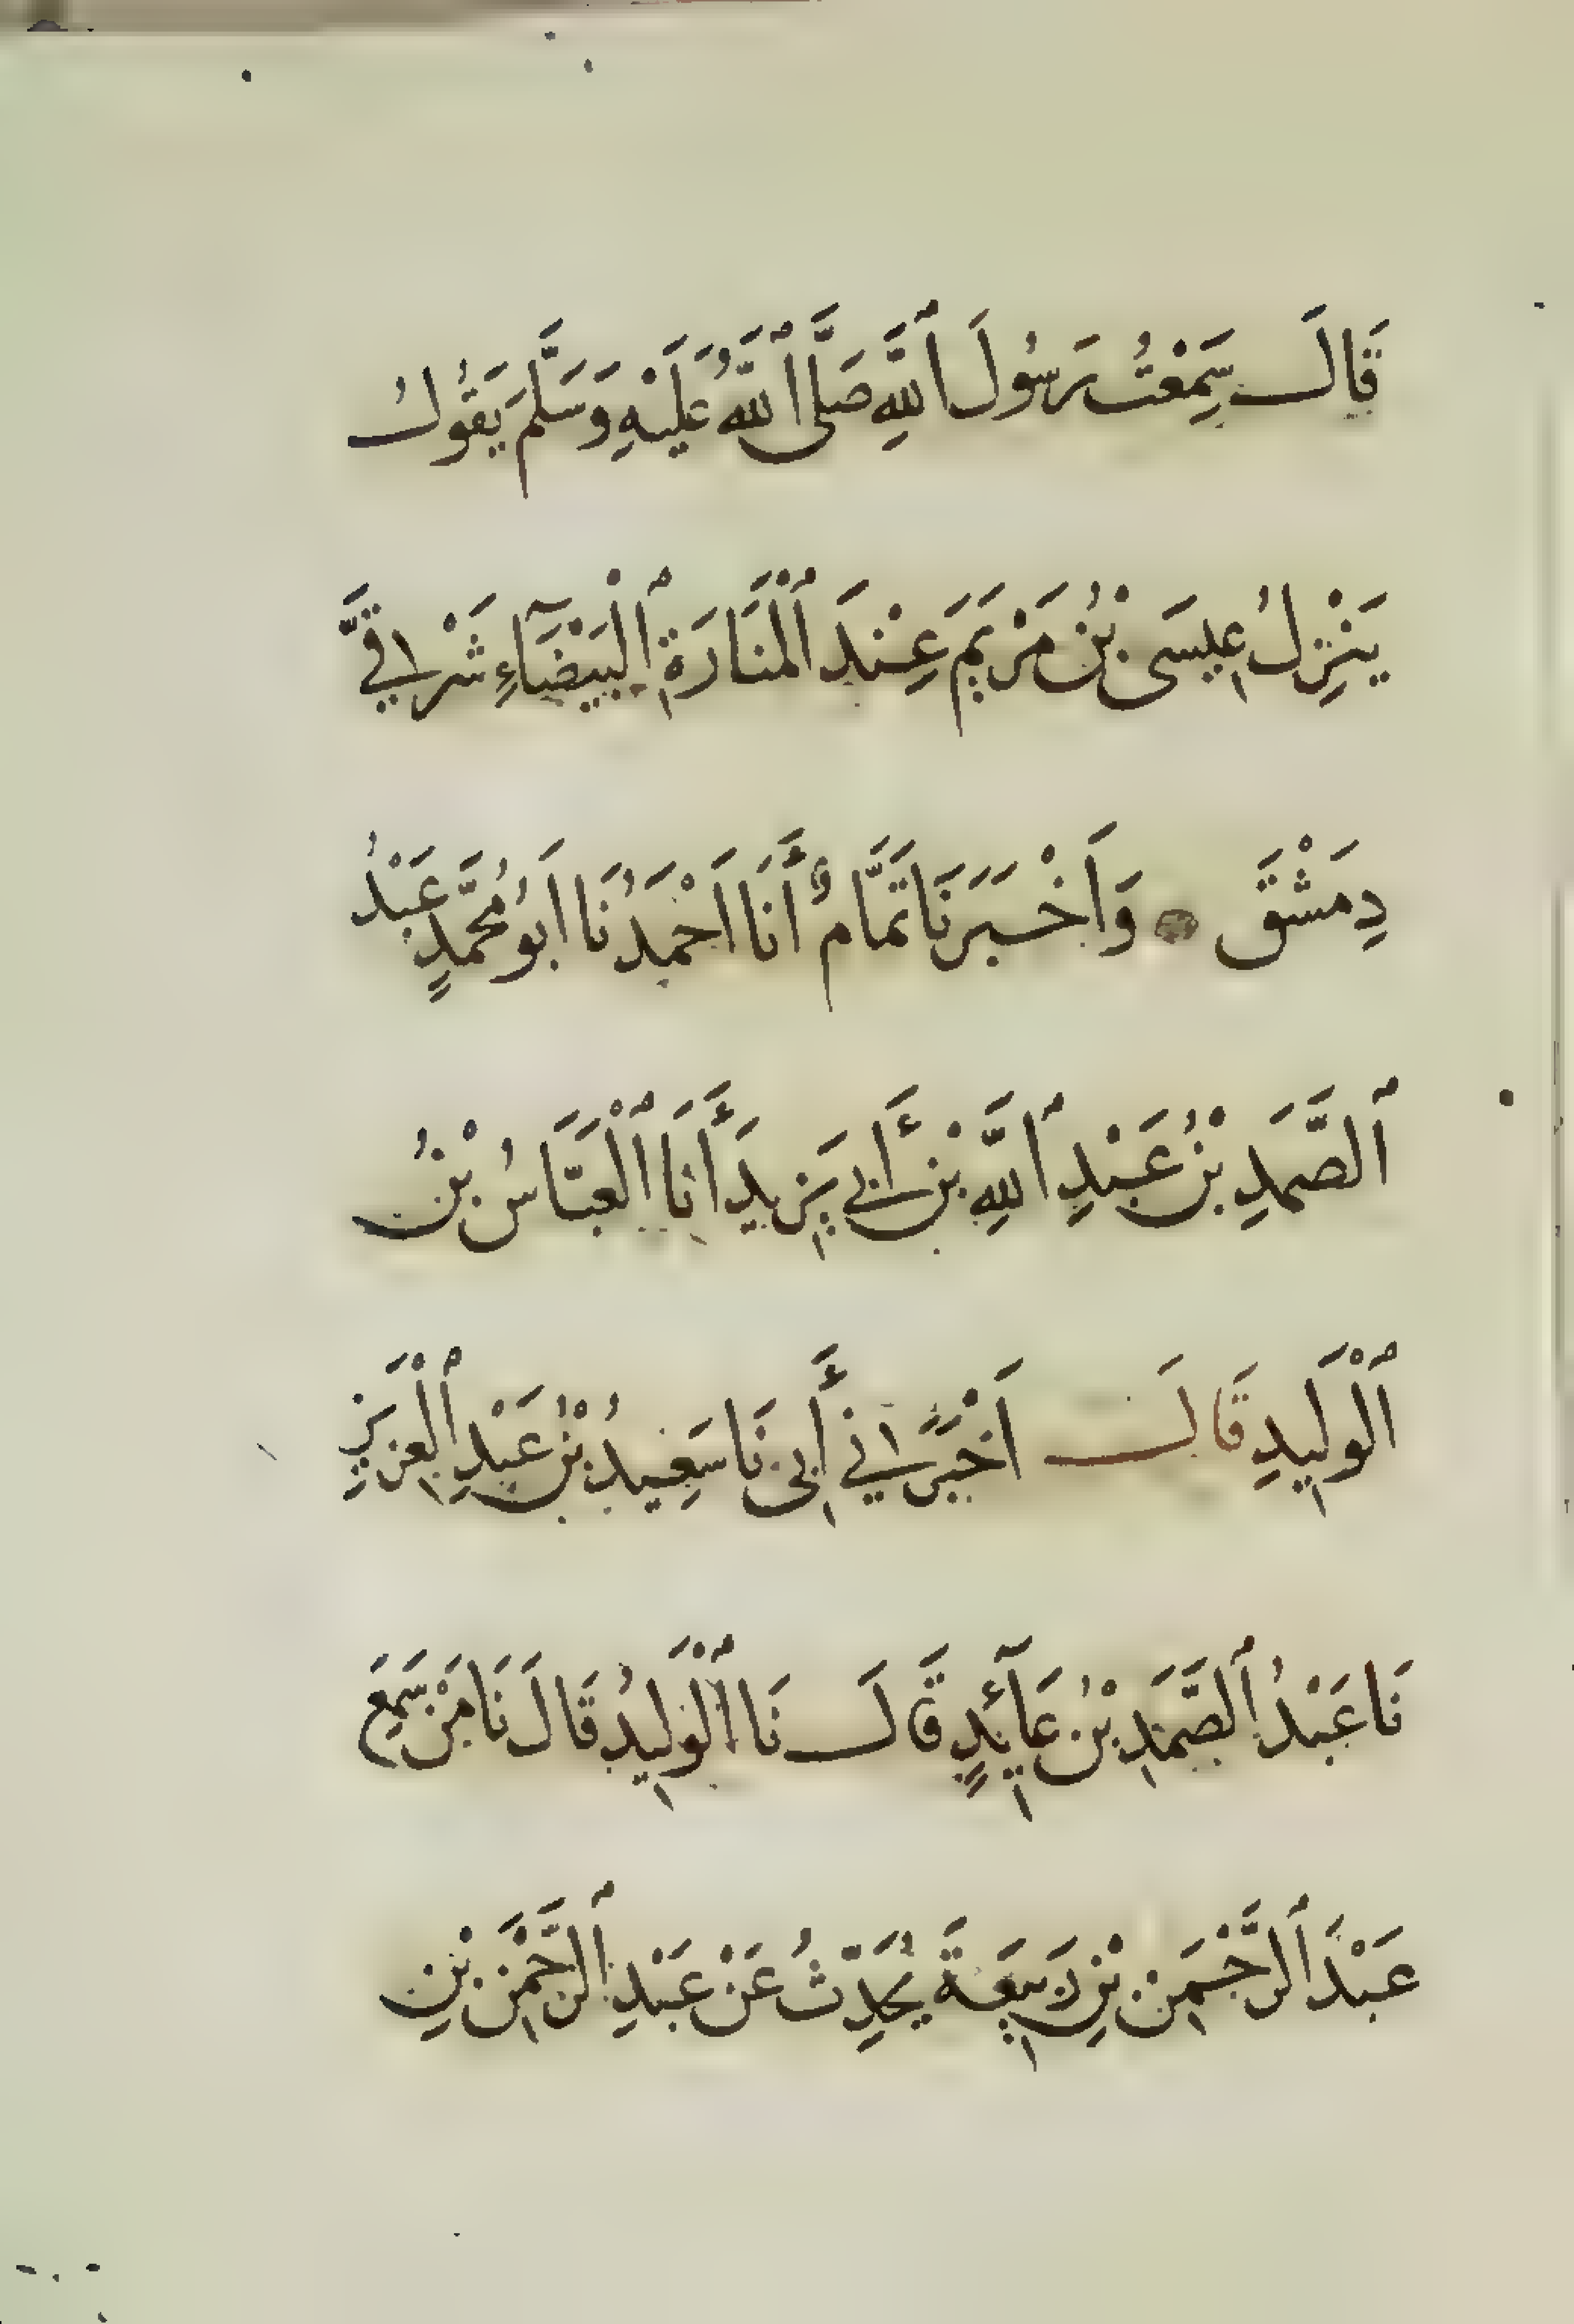 قَالَ سَمِعْتُ رَسُولَ ٱللَّهِ صَلَّى ٱللَّهُ عَلَيْهِ وَسَلَّمَ يَقُولُ
يَنْزِلُ عِيسَى بْنُ مَرْيَمَ عِنْدَ ٱلْمَنَارَةِ ٱلْبَيْضَآءِ شَرْقِيَّ
دِمَشْقَ وَاَخْبَرَنَا تَمَّامٌ أَنَا اَحْمَدُ نَا اَبُو مُحَمَّدٍ عَبْدُ
ٱلصَّمَدِ بْنُ عَبْدِ ٱللَّهِ بْنِ أَبِي يَزِيدَ أَنَا ٱلْعَبَّاسُ بْنُ
ٱلْوَلِيدِ قَالَ اَخْبَرَنِي أَبِي نَا سَعِيدُ بْنُ عَبْدِ ٱلْعَزِيزِ
نَا عَبْدُ ٱلصَّمَدِ بْنُ عَآئِدٍ قَالَ نَا ٱلْوَلِيدُ قَالَ نَا مَنْ سَمِعَ
عَبْدَ ٱلرَّحْمَنِ بْنِ رَبِيعَةَ يُحَدِّثُ عَنْ عَبْدِ ٱلرَّحْمَنِ بْنِ